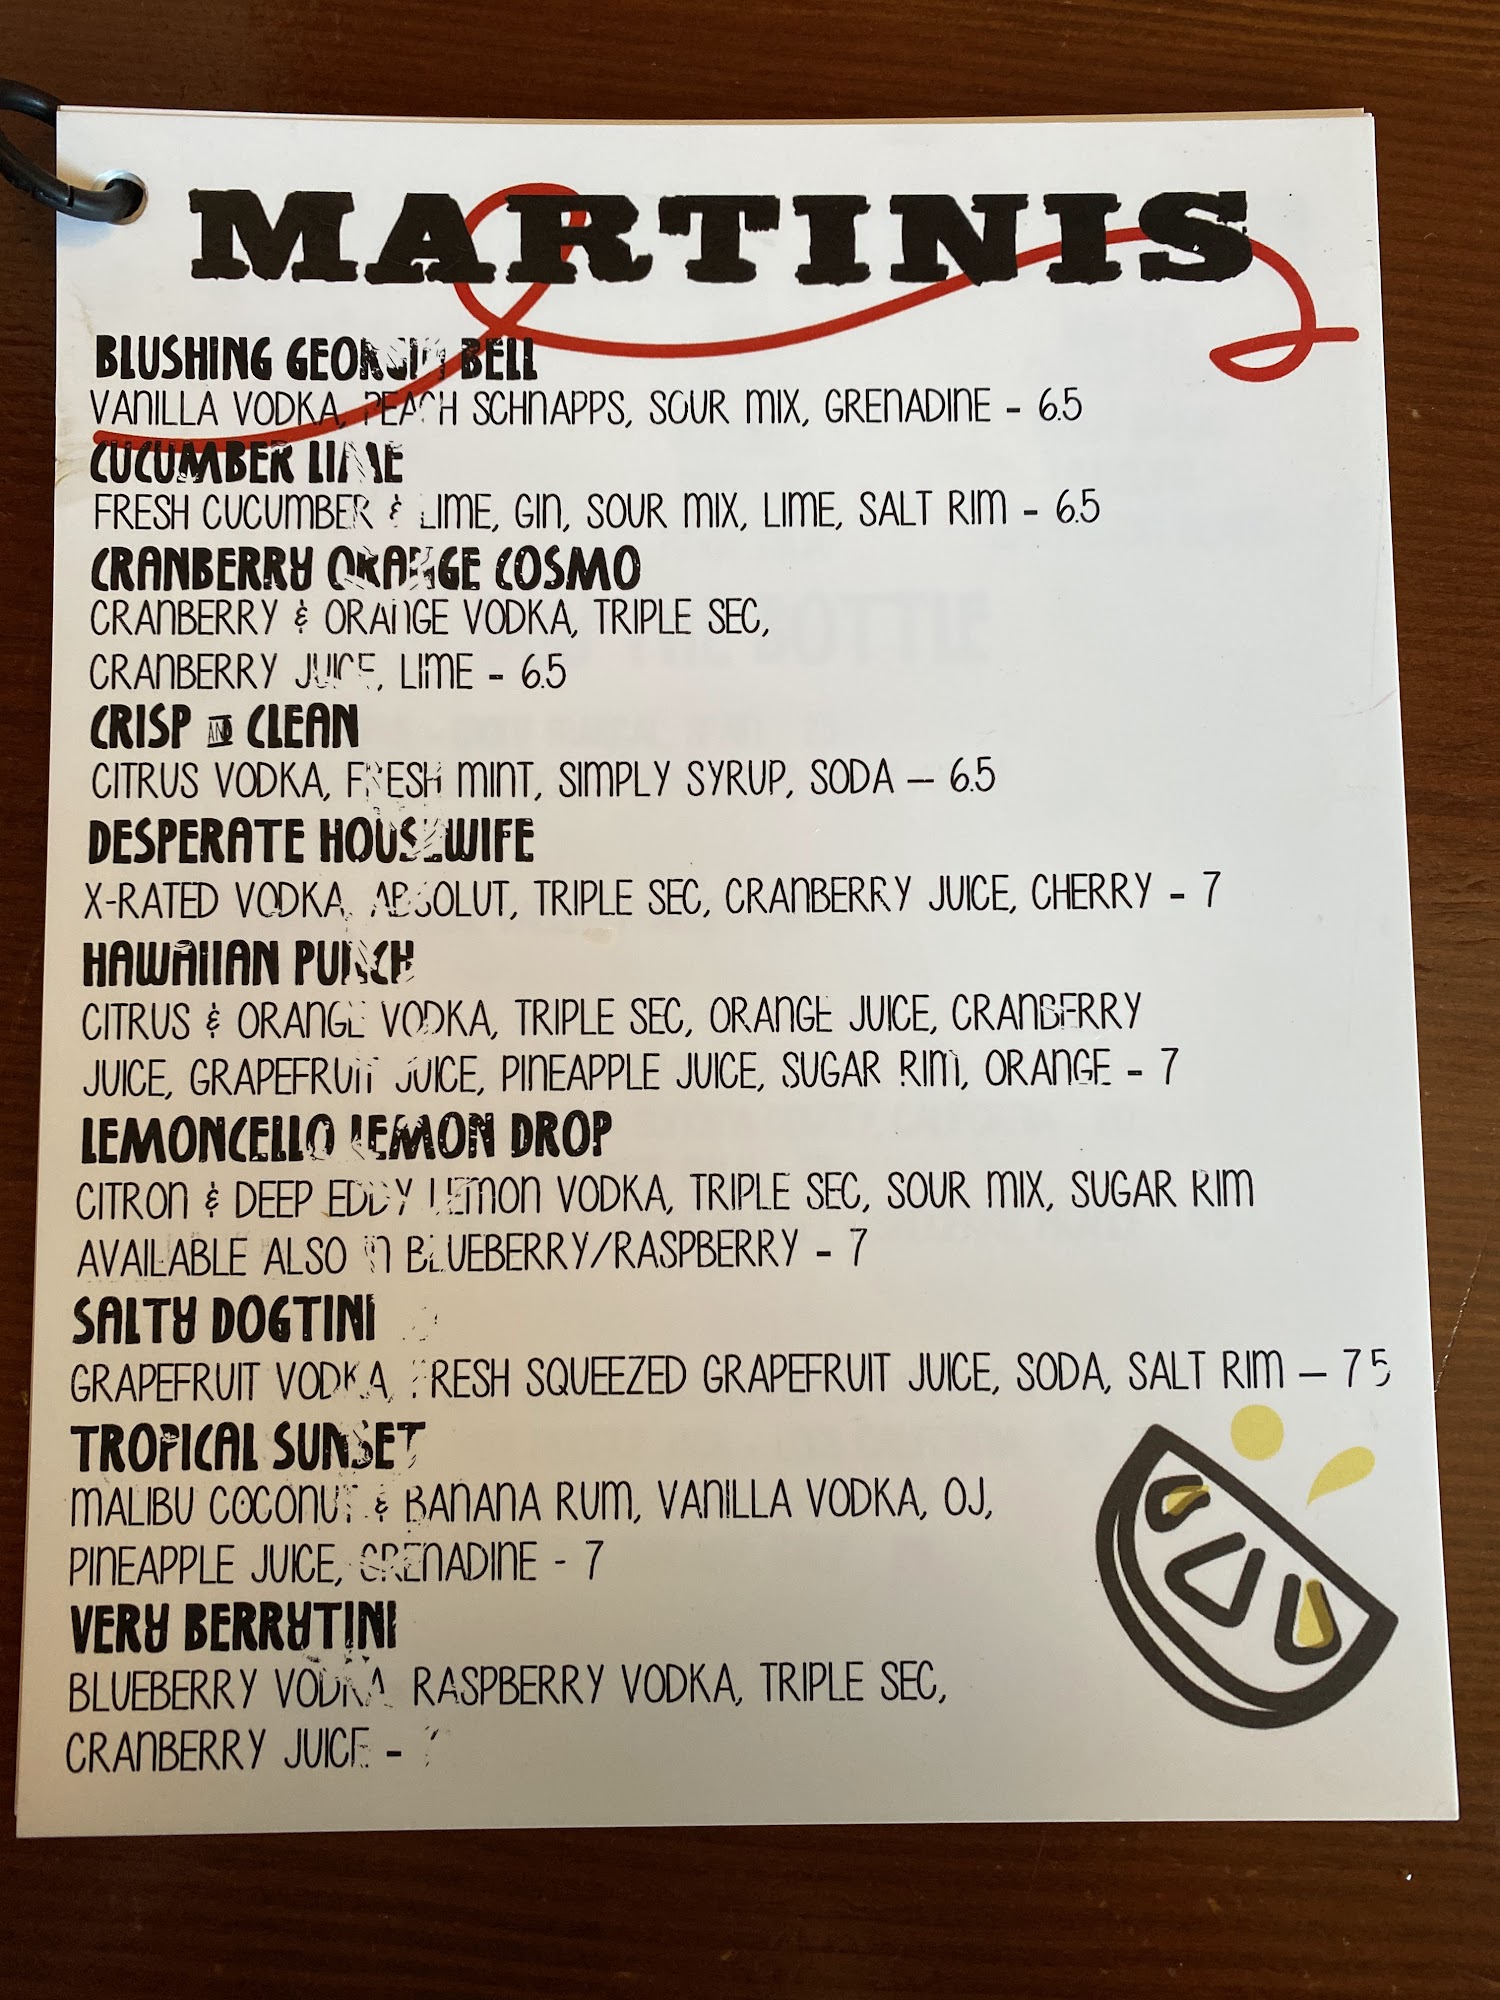 MARTINIS
BLUSHING GEORGIA BELL
VANILLA VODKA, PEACH SCHNAPPS, SOUR MIX, GRENADINE - 6.5
CUCUMBER LIME
FRESH CUCUMBER & LIME, GIN, SOUR MIX, LIME, SALT RIM - 6.5
CRANBERRY ORANGE COSMO
CRANBERRY & ORANGE VODKA, TRIPLE SEC,
CRANBERRY JUICE, LIME - 6.5
CRISP AND CLEAN
CITRUS VODKA, FRESH MINT, SIMPLY SYRUP, SODA – 6.5
DESPERATE HOUSEWIFE
X-RATED VODKA, ABSOLUT, TRIPLE SEC, CRANBERRY JUICE, CHERRY - 7
HAWAIIAN PUNCH
CITRUS & ORANGE VODKA, TRIPLE SEC, ORANGE JUICE, CRANBERRY
JUICE, GRAPEFRUIT JUICE, PINEAPPLE JUICE, SUGAR RIM, ORANGE - 7
LEMONCELLO LEMON DROP
CITRON & DEEP EDDY LEMON VODKA, TRIPLE SEC, SOUR MIX, SUGAR RIM
AVAILABLE ALSO IN BLUEBERRY/RASPBERRY - 7
SALTY DOGTINI
GRAPEFRUIT VODKA, FRESH SQUEEZED GRAPEFRUIT JUICE, SODA, SALT RIM – 7.5
TROPICAL SUNSET
MALIBU COCONUT & BANANA RUM, VANILLA VODKA, OJ,
PINEAPPLE JUICE, GRENADINE - 7
VERY BERRYTINI
BLUEBERRY VODKA, RASPBERRY VODKA, TRIPLE SEC,
CRANBERRY JUICE -